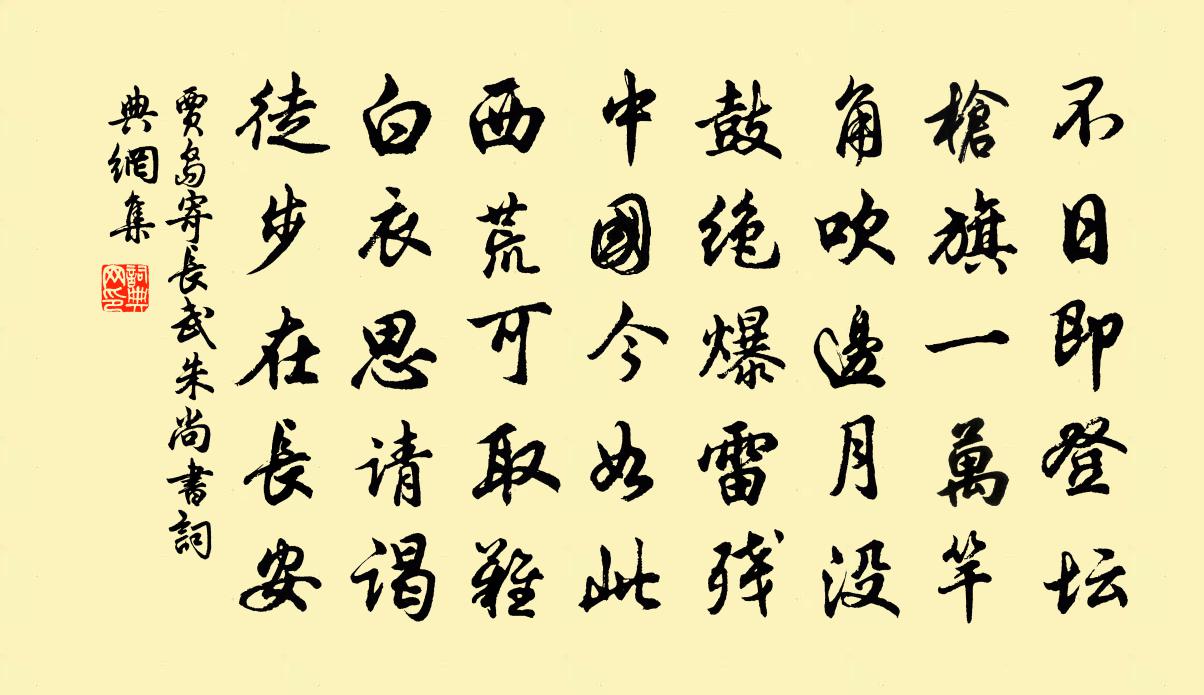 不日即登坛
槍旗一萬竿
角吹邊月没
鼓绝爆雷残
中國今如此
西荒可取難
白衣思请谒
徒步在長安
賈島寄長武朱尚書詞
典網集
詞典网印